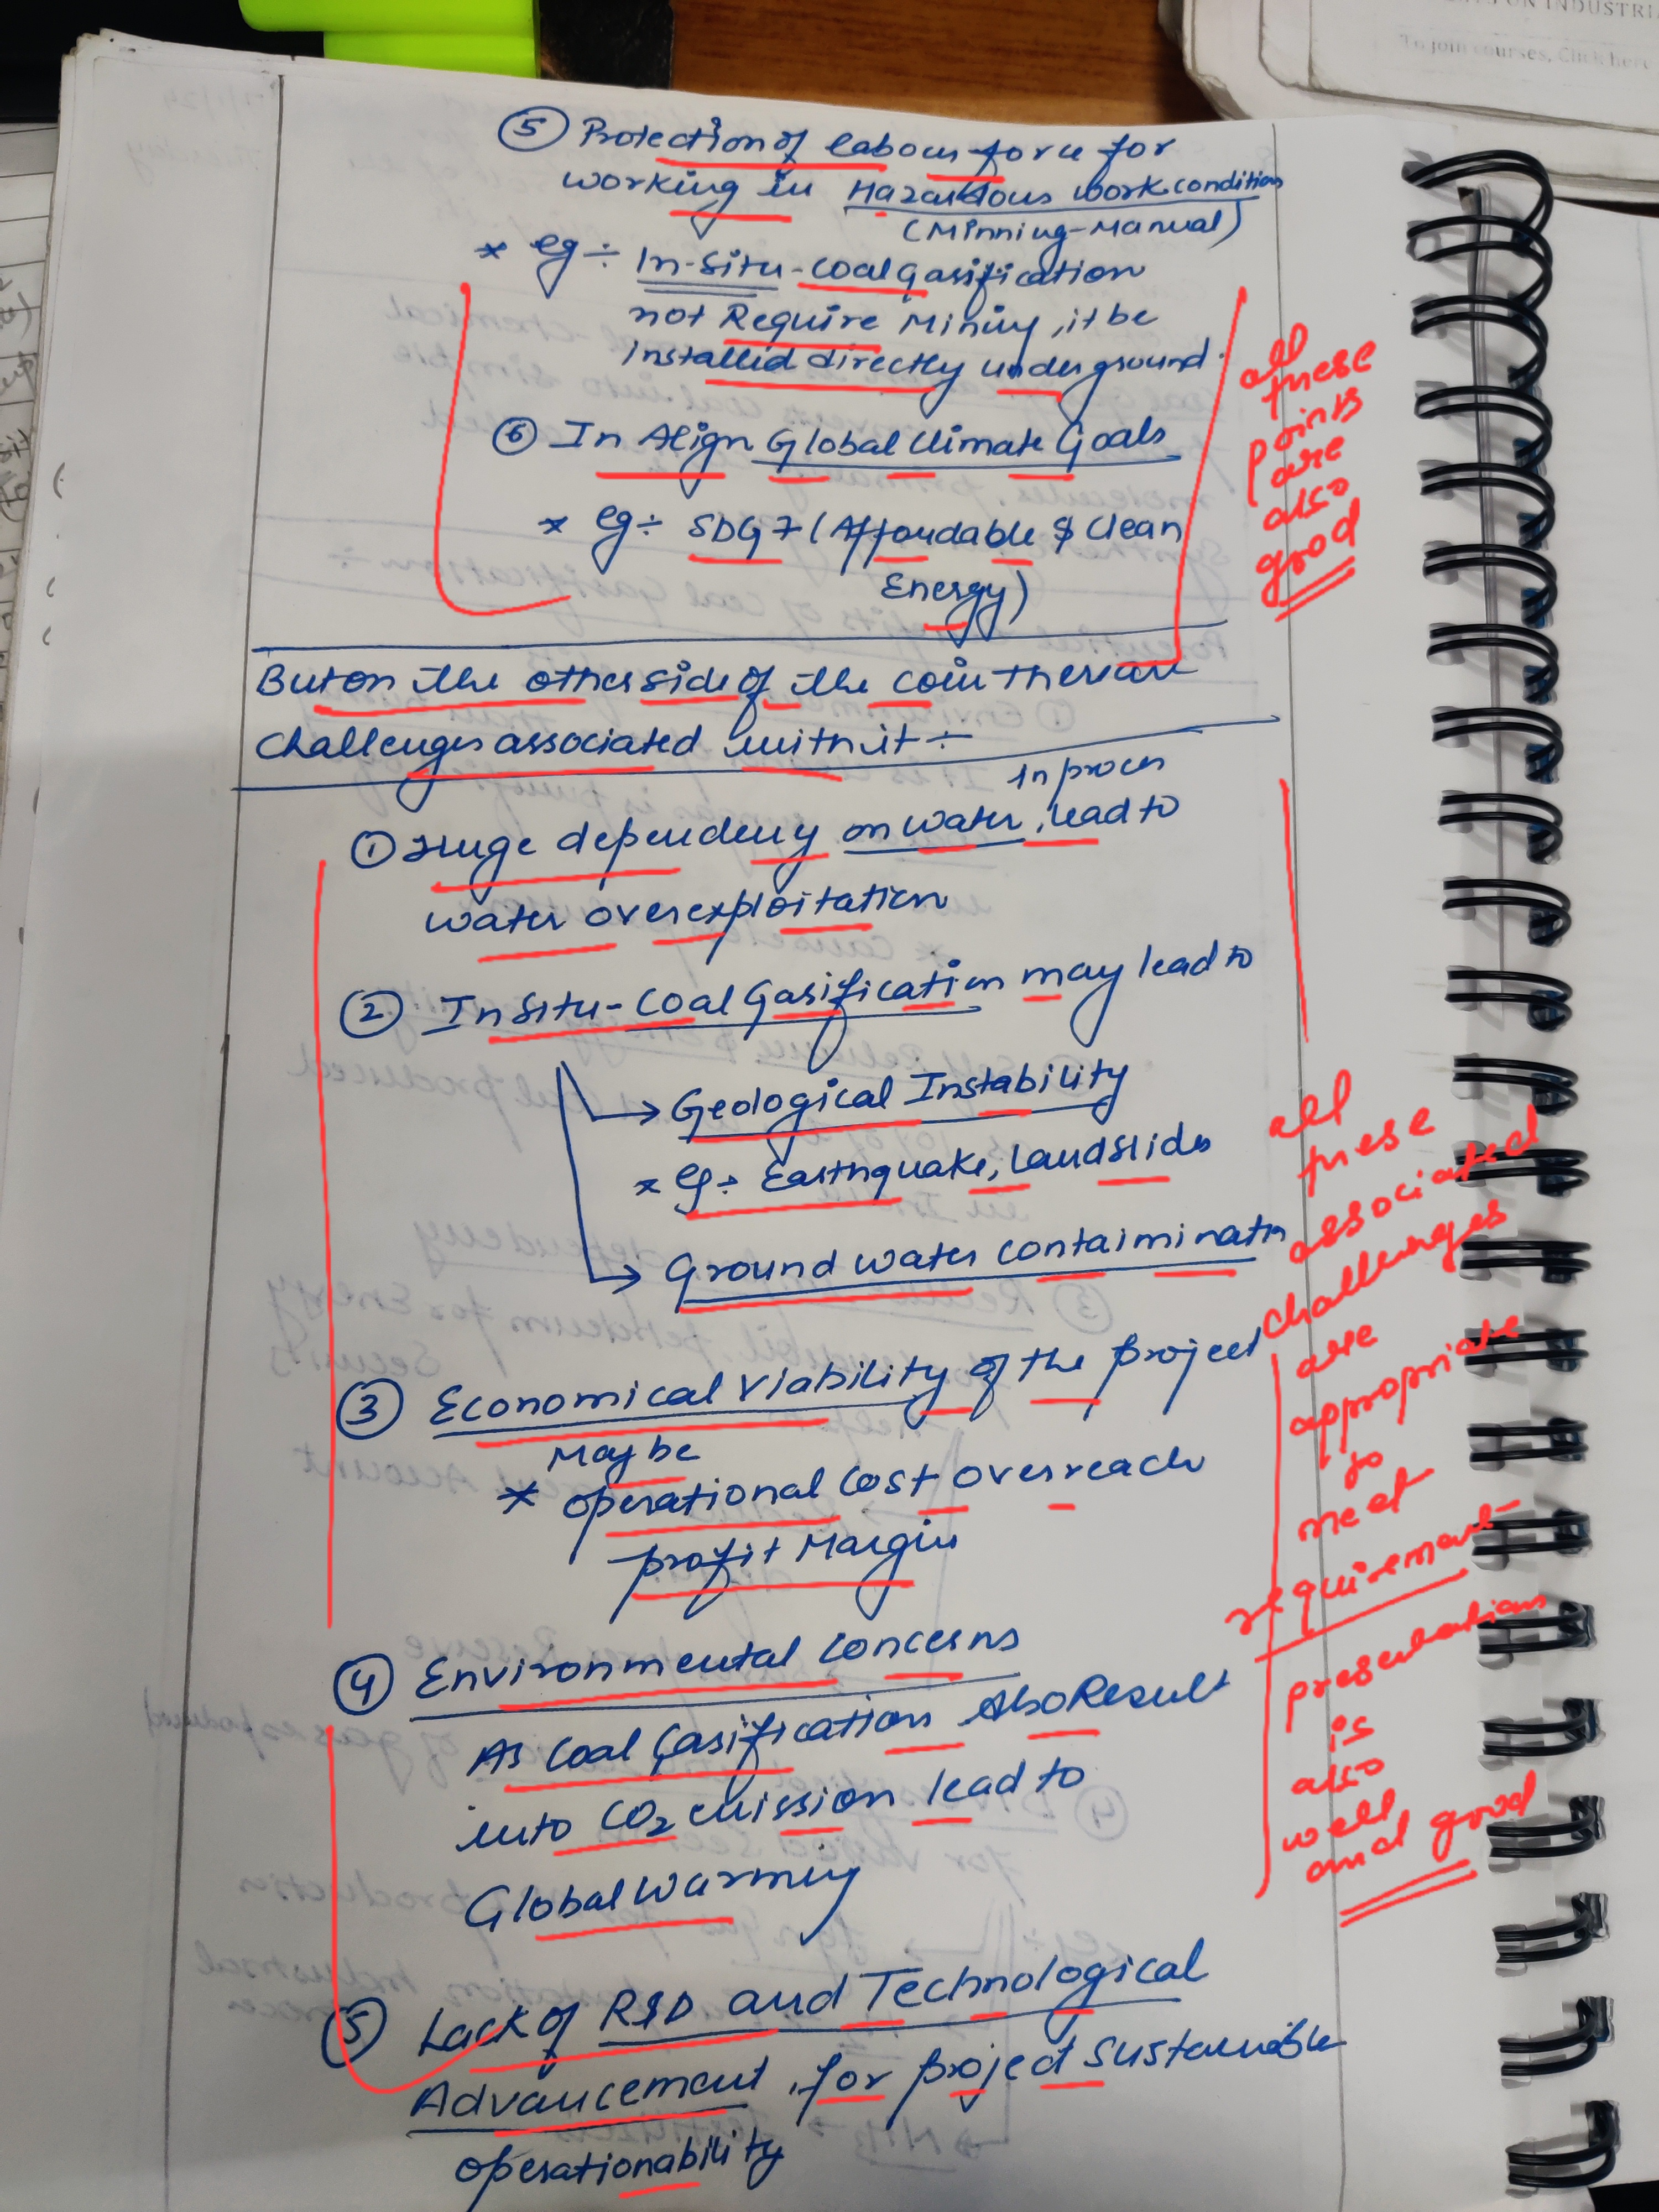 ⑤ Protection of labour force for
working in Hazardous work condition
(Minning-Manual)
* eg ÷ In-Situ-coal gasification
not Require Mining, it be
installed directly underground.
⑥ In Align Global Climate Goals
* eg ÷ SDG 7 (Affordable & Clean
Energy)
all
these
points
are
also
good
But on the other side of the coin there are
challenges associated with it ÷
In process
① Huge dependency on water, lead to
water overexploitation
② In Situ-Coal Gasification may lead to
→ Geological Instability
* eg ÷ Earthquake, Landslides
→ Ground water contaimination
③ Economical Viability of the project
May be
* operational Cost overreach
profit Margin
④ Environmental Concerns
As Coal Gasification Also Result
into CO₂ emission lead to
Global Warming
⑤ Lack of R&D and Technological
Advancement, for project sustainable
operationability
all
these
associated
challenges
are
appropriate
to
meet
requirement
presentations
is
also
well
and good
INDUSTRI
To join courses, Click here